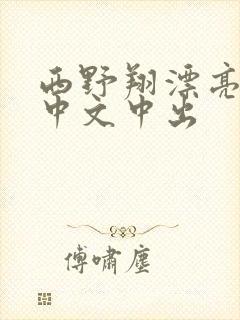 西野翔漂亮
中文中出
傅啸尘